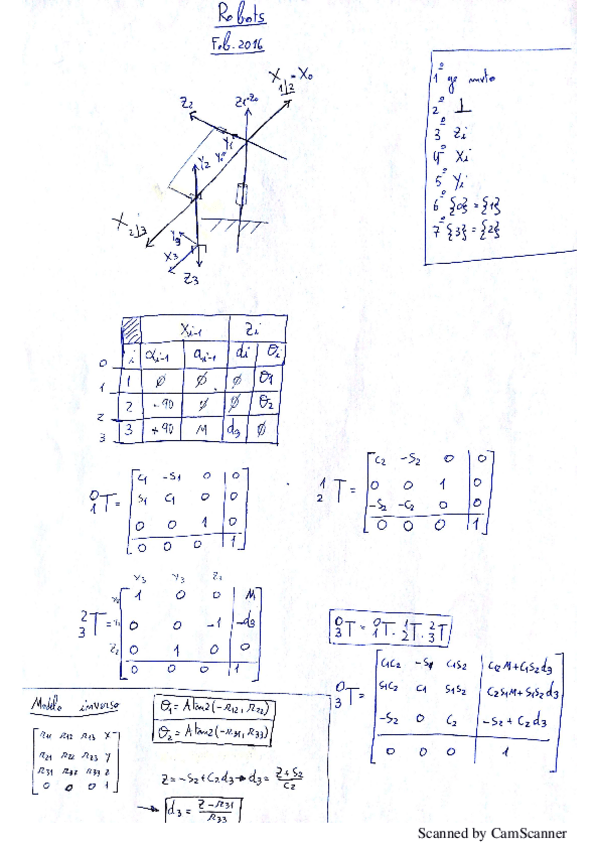 Robots
Feb. 2016
X1|2=X0
Z2
Z1=Z0
Y1
Y2
X2|3
Y3
X3
Z3
1º
2º ⊥
3º Zi
4º Xi
5º Yi
6º {0}={1}
7º {3}={2}
Xi-1 Zi
i αi-1 ai-1 di Θi
0
1 1 ∅ ∅ ∅ Θ1
2 2 -90 ∅ ∅ Θ2
3 3 +90 M d3 ∅
0 1 T = [C1 -S1 0 | 0
S1 C1 0 | 0
0 0 1 | 0
0 0 0 | 1]
1 2 T = [C2 -S2 0 | 0
0 0 1 | 0
-S2 -C2 0 | 0
0 0 0 | 1]
2 3 T = [1 0 0 | M
0 0 -1 | -d3
0 1 0 | 0
0 0 0 | 1]
0 3 T = 0 1 T · 1 2 T · 2 3 T
0 3 T = [C1C2 -S1 C1S2 | C1C2M+C1S2d3
S1C2 C1 S1S2 | C2S1M+S1S2d3
-S2 0 C2 | -S2+C2d3
0 0 0 | 1]
Modelo inverso
r11 r12 r13 X
r21 r22 r23 Y
r31 r32 r33 z
0 0 0 1
Θ1 = Atan2(-r12, r22)
Θ2 = Atan2(-r31, r33)
Z = -S2+C2d3 → d3 = Z+S2 / C2
→ d3 = Z-r31 / r33
Scanned by CamScanner